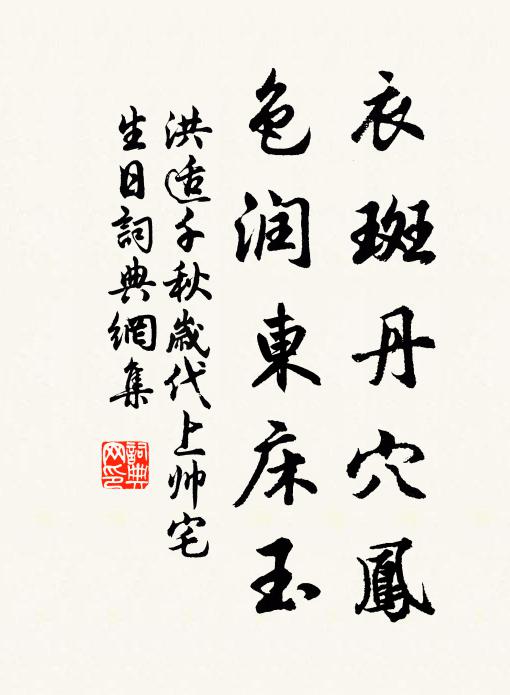 衣斑丹穴鳳
色润東床玉
洪适千秋歲代上帅宅
生日詞典網集
詞典网印